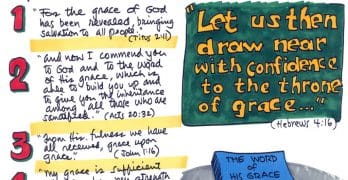 1
"For the grace of God
has been revealed, bringing
salvation to all people."
(Titus 2:11)
2
"and now I commend you
to God and to the word
of His grace, which is
able to build you up and
to give you the inheritance
among all those who are
sanctified." (Acts 20:32)
3
"From His fulness we have
all received, grace upon
grace." (John 1:16)
4
"My grace is sufficient
"Let us then
draw near
with confidence
to the throne
of grace..."
(Hebrews 4:16)
THE WORD
of
HIS GRACE